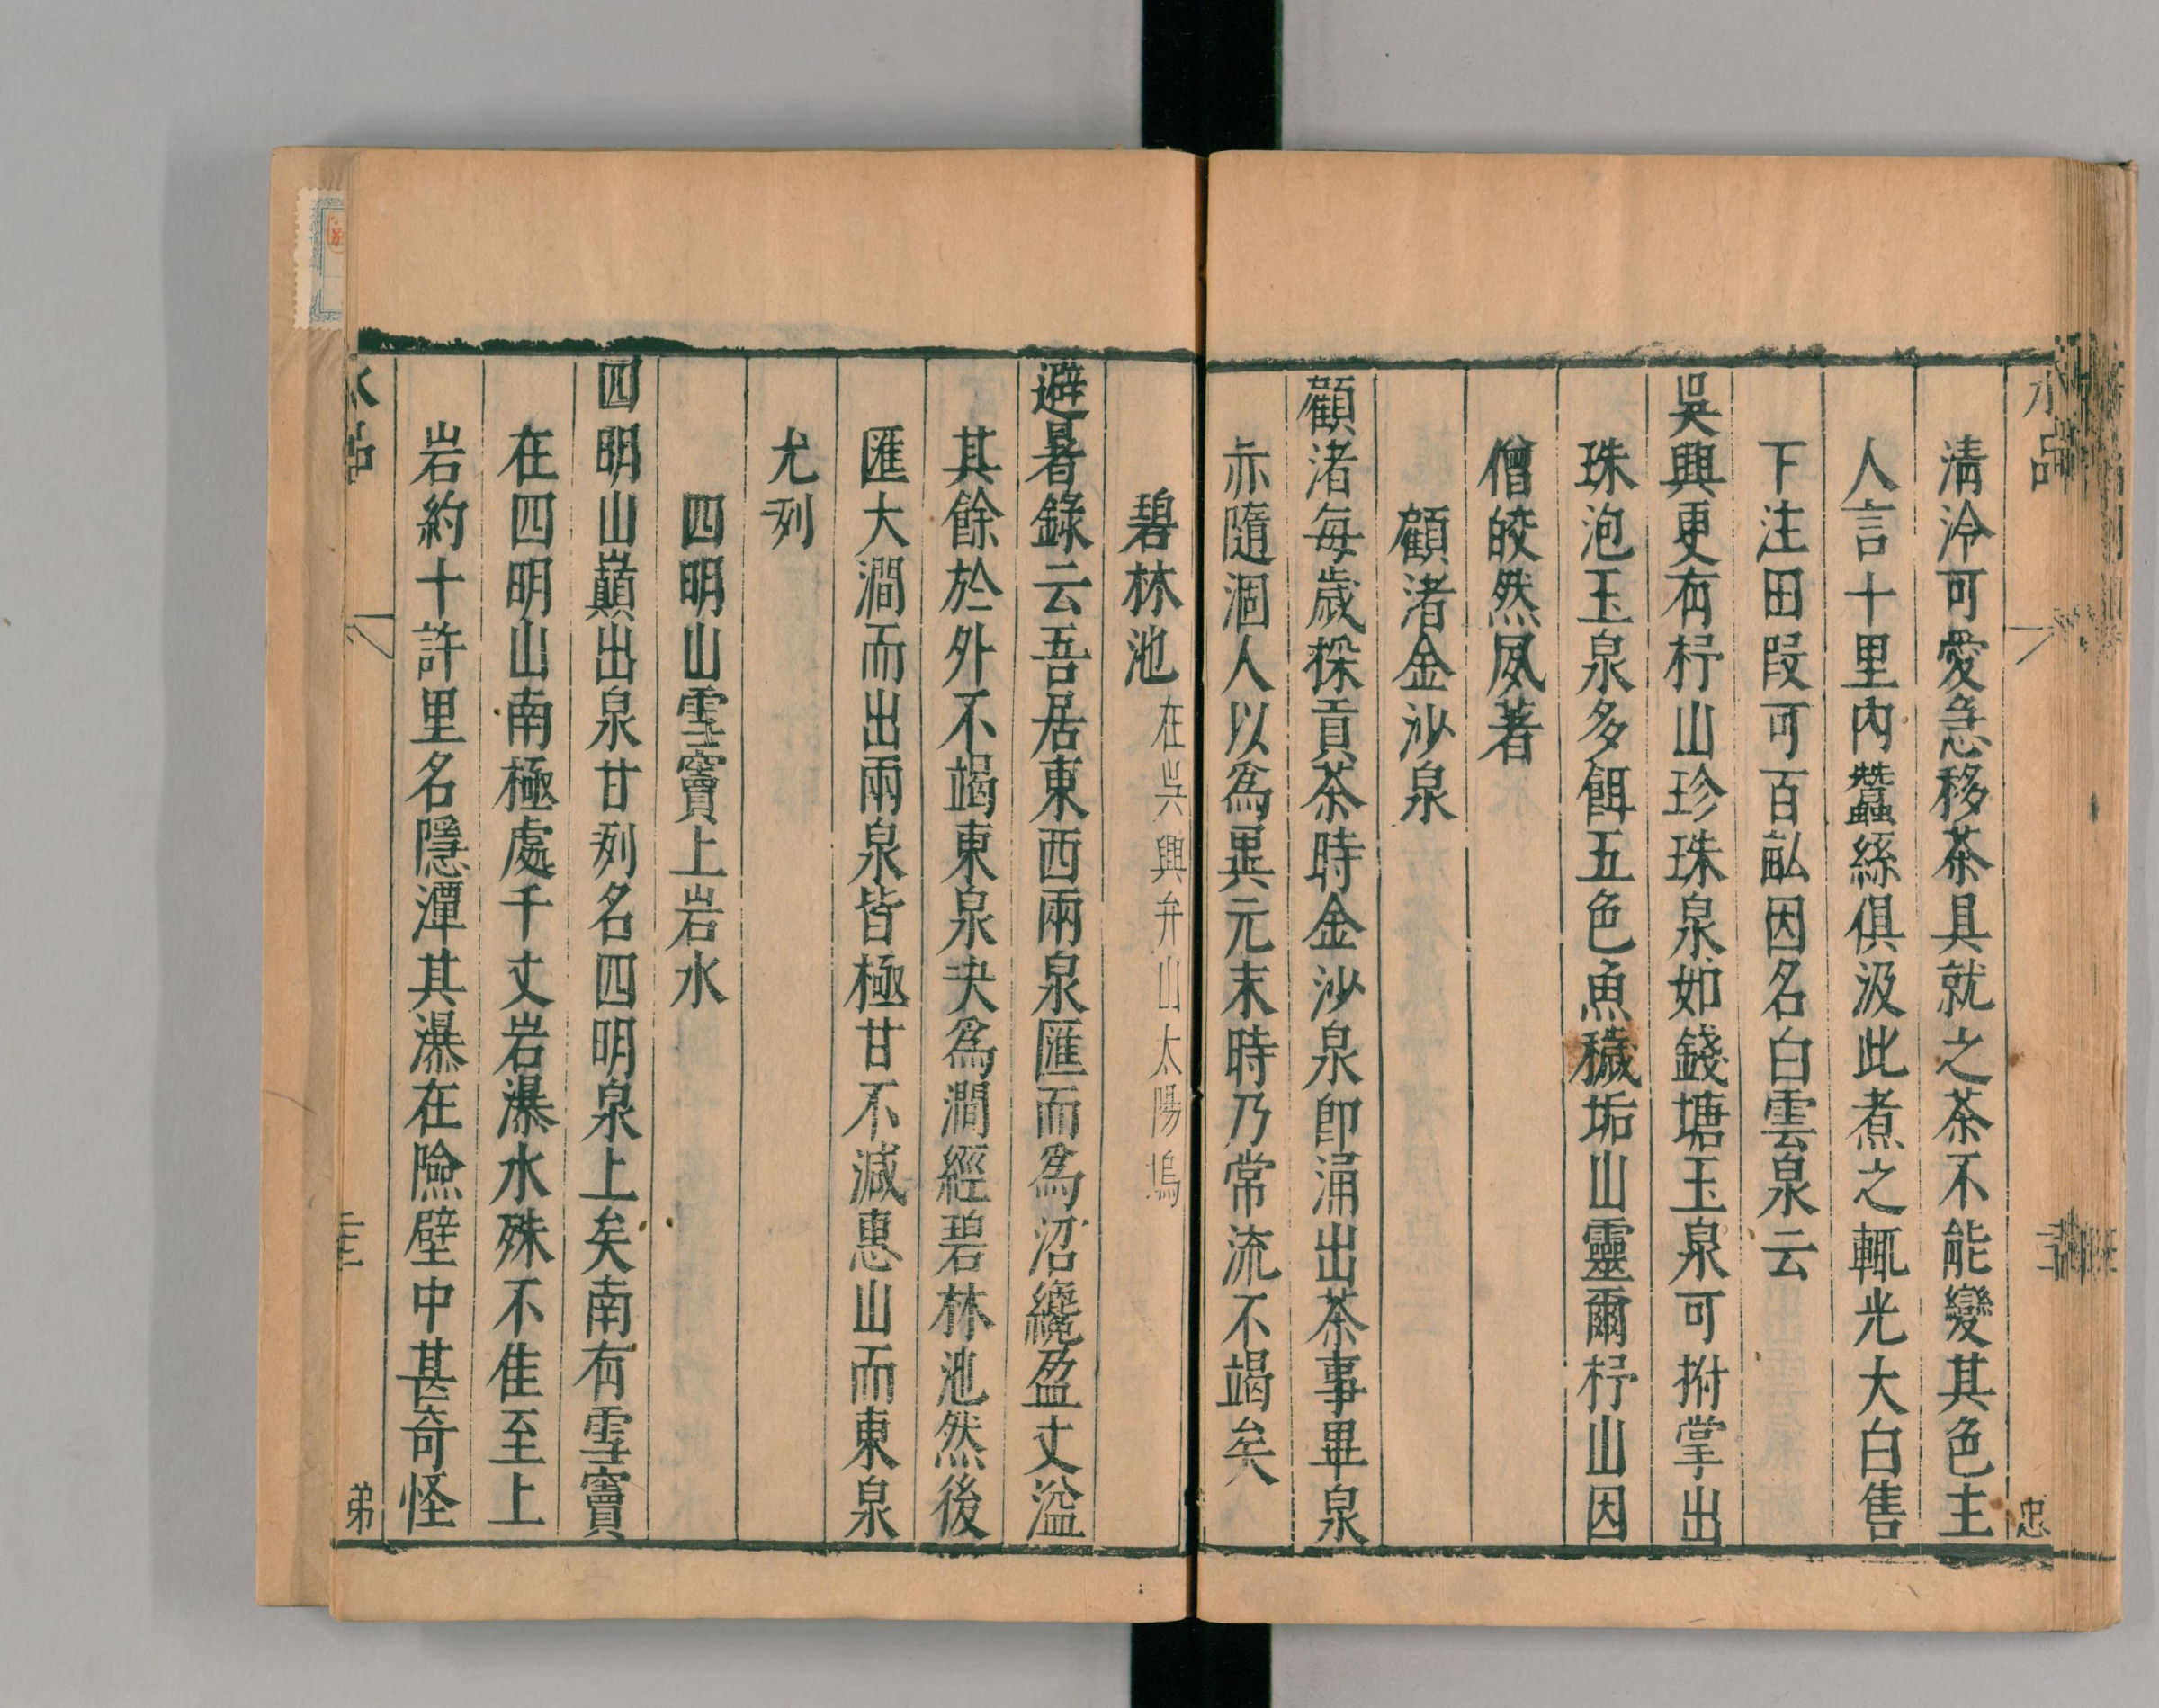 水品
忠
清泠可愛急移茶具就之茶不能變其色主
人言十里內蠶絲俱汲此煮之輒光大白售
下注田段可百畝因名白雲泉云
吳興更有杼山珍珠泉如錢塘玉泉可拊掌出
珠泡玉泉多餌五色魚穢垢山靈爾杼山因
僧皎然夙著
顧渚金沙泉
顧渚每歲採貢茶時金沙泉即涌出茶事畢泉
亦隨涸人以爲異元末時乃常流不竭矣
碧林池在吳興弁山太陽塢
避暑錄云吾居東西兩泉匯而爲沼纔盈丈溢
其餘於外不竭東泉夬爲澗經碧林池然後
匯大澗而出兩泉皆極甘不減惠山而東泉
尤列
四明山雪竇上岩水
四明山巔出泉甘列名四明泉上矣南有雪竇
在四明山南極處千丈岩瀑水殊不佳至上
岩約十許里名隱潭其瀑在險壁中甚奇怪
弟